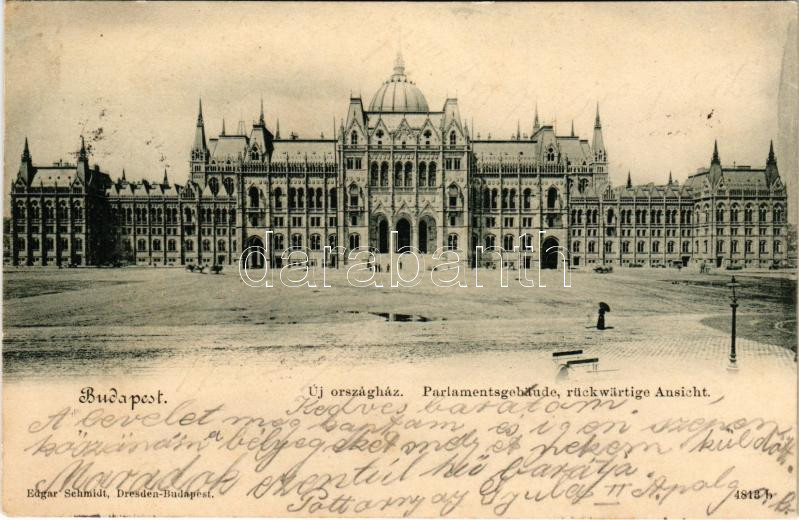 darabanth
Budapest.
Új országház. Parlamentsgebäude, rückwärtige Ansicht.
Kedves barátom,
A levelet meg kaptam és igen szépen
köszönöm a bélyegeket melyet nekem küldött.
Maradok ezentúl hű barátja
Pottornyay Gyula II
Edgar Schmidt, Dresden-Budapest.
4813 b